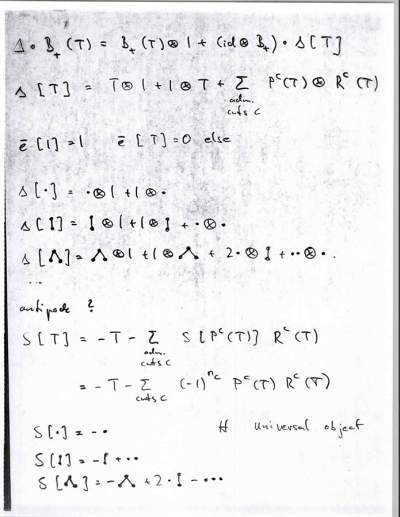 Δ ∘ B₊(T) = B₊(T)⊗1 + (id⊗B₊)∘Δ[T]
Δ[T] = T⊗1 + 1⊗T + Σ_{adm. cuts C} P^c(T) ⊗ R^c(T)
ē[1]=1 ē[T]=0 else
Δ[•] = •⊗1 + 1⊗•
Δ[I] = I⊗1 + 1⊗I + •⊗•
Δ[Λ] = Λ⊗1 + 1⊗Λ + 2•⊗I + ••⊗•.
...
antipode ?
S[T] = -T - Σ_{adm. cuts C} S[P^c(T)] R^c(T)
= -T - Σ_{cuts C} (-1)^{n_c} P^c(T) R^c(T)
S[•] = -• H universal object
S[I] = -I + ••
S[Λ] = -Λ + 2•I - •••